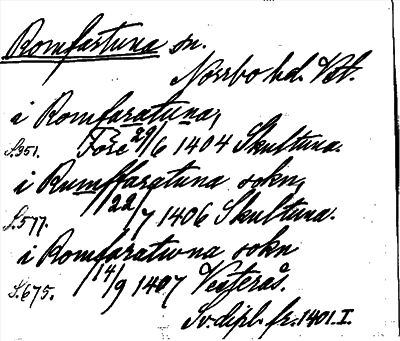 Romfartuna sn.
Norrbo hd. Vstl.
i Romfaratuna,
S. 351. Före 29/6 1404 Skultuna.
i Rumffaratuna sokn,
S. 577. 22/7 1406 Skultuna.
i Romfaratwna sokn
S. 675. 14/9 1407 Vesterås.
Sv. dipl. fr. 1401. I.